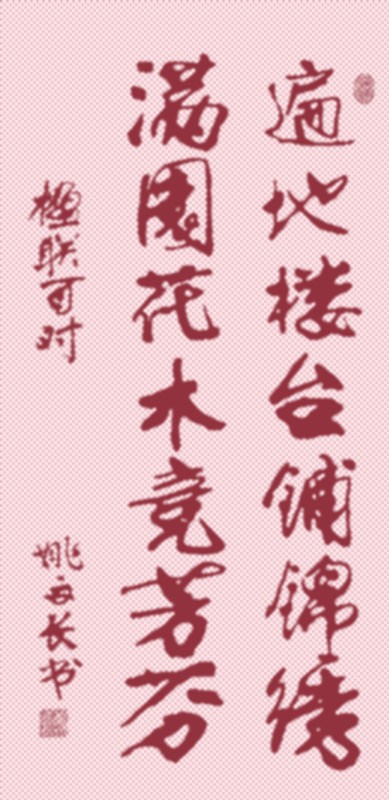 遍地楼台铺锦绣
满園花木竞芳芬
楹联可对
姚 长书